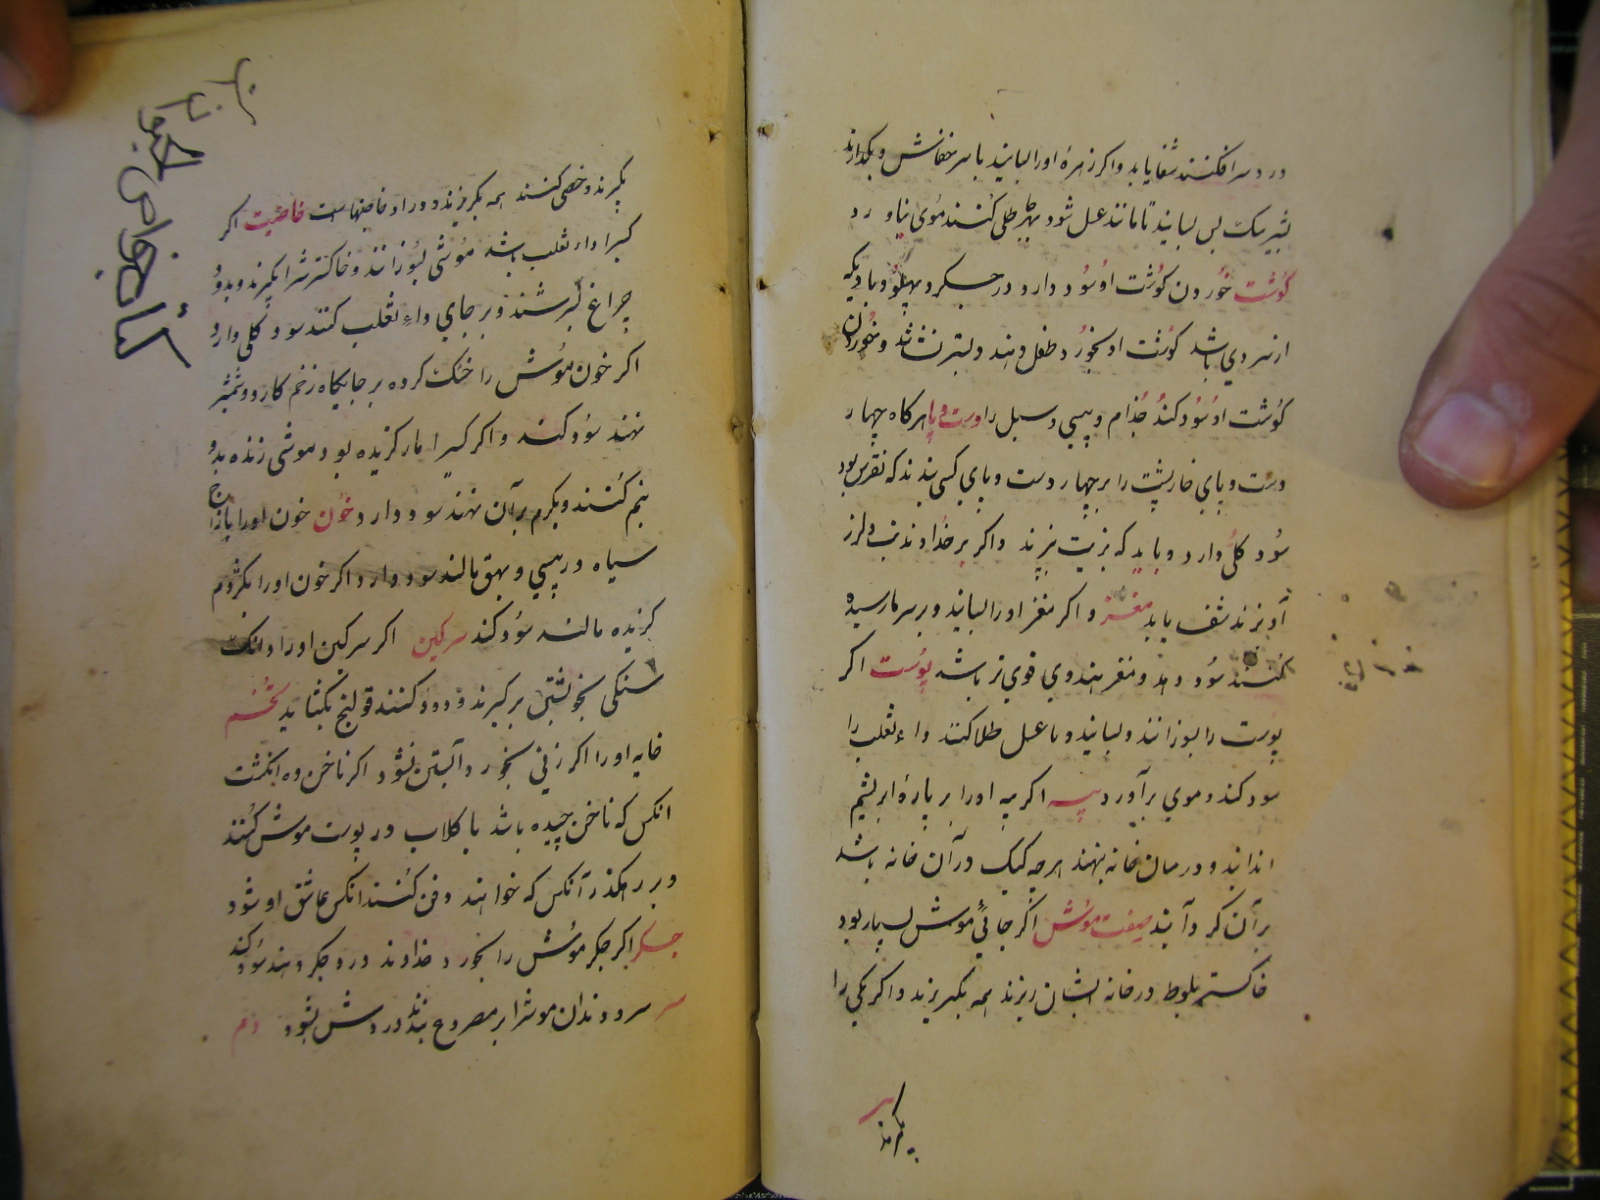 در دسر افکنند شفا یابد و اکر زهرهٔ او را بسایند با سر خفاش و بکدارند
بشیر سک پس بسایند تا مانند عسل شود بهر جا طلی کنند موی نیاورد
کوشت خوردن کوشت او سود دارد درد جسکر و پهلو و بادیکه
از سردی باشد کوشت او بخورد طفل دهند و بستر نشاشد و خوردن
کوشت او سود کند جذام و پیسی و سبل را دست و پا هرکاه چهار
دست و پای خارپشت را بر چهار دست و پای کسی بندند که نقرس بود
سود کلی دارد و باید که بزیت بپزند و اکر بر خداوند تب و لرز
آویزند شفا یابد مغز و اکر مغز او را بسایند و بر سرما رسیده
کنند سود دهد و مغز هندوی قوی تر باشد پوست اکر
پوست را بسوزانند و بسایند و با عسل طلا کنند داء ثعلب را
سود کند و موی برآورد پیه اکر پیه او را بر پارهٔ ابریشم
اندایند و در میان خانه بنهند هر چه کیک در آن خانه باشد
بر آن کرد آیند صفت موش اکر جائی موش بسیار بود
خاکستر بلوط در خانه ایشان ریزند همه بکریزند و اکر یکی را
بکیرند
کتاب خواص الحیوان
بکیرند و خصی کنند همه بکریزند و در او خاصیتهاست خاصیت اکر
کسیرا داء ثعلب باشد موشی بسوزانند و خاکسترش را بکیرند و بدو
چراغ بسرشند و بر جای داء ثعلب کنند سود کلی دارد
اکر خون موش را خشک کرده بر جایکاه زخم کارد و شمشیر
نهند سود کند و اکر کسیرا مار کزیده بود موشی زنده بدو
نیم کنند و بکرم بر آن نهند سود دارد خون خون او را با زاج
سیاه در پیسی و بهق مالند سود دارد اکر خون او را بکژدم
کزیده مالند سود کند سرکین اکر سرکین او را دانک
سنکی بخویشتن برکیرند و دود کنند قولنج بکشاید تخم
خایه او را اکر زنی بخورد آبستن نشود اکر ناخن ده انکشت
انکس که ناخن چیده باشد با کلاب در پوست موش کنند
و بر رهکذر آنکس که خواهند دفن کنند انکس عاشق او شود
جسکر اکر جکر موش را بخورد خداوند درد جکر دهند سود کند
سر سر و دندان موش را بر مصروع بندند در دمش بشود دم